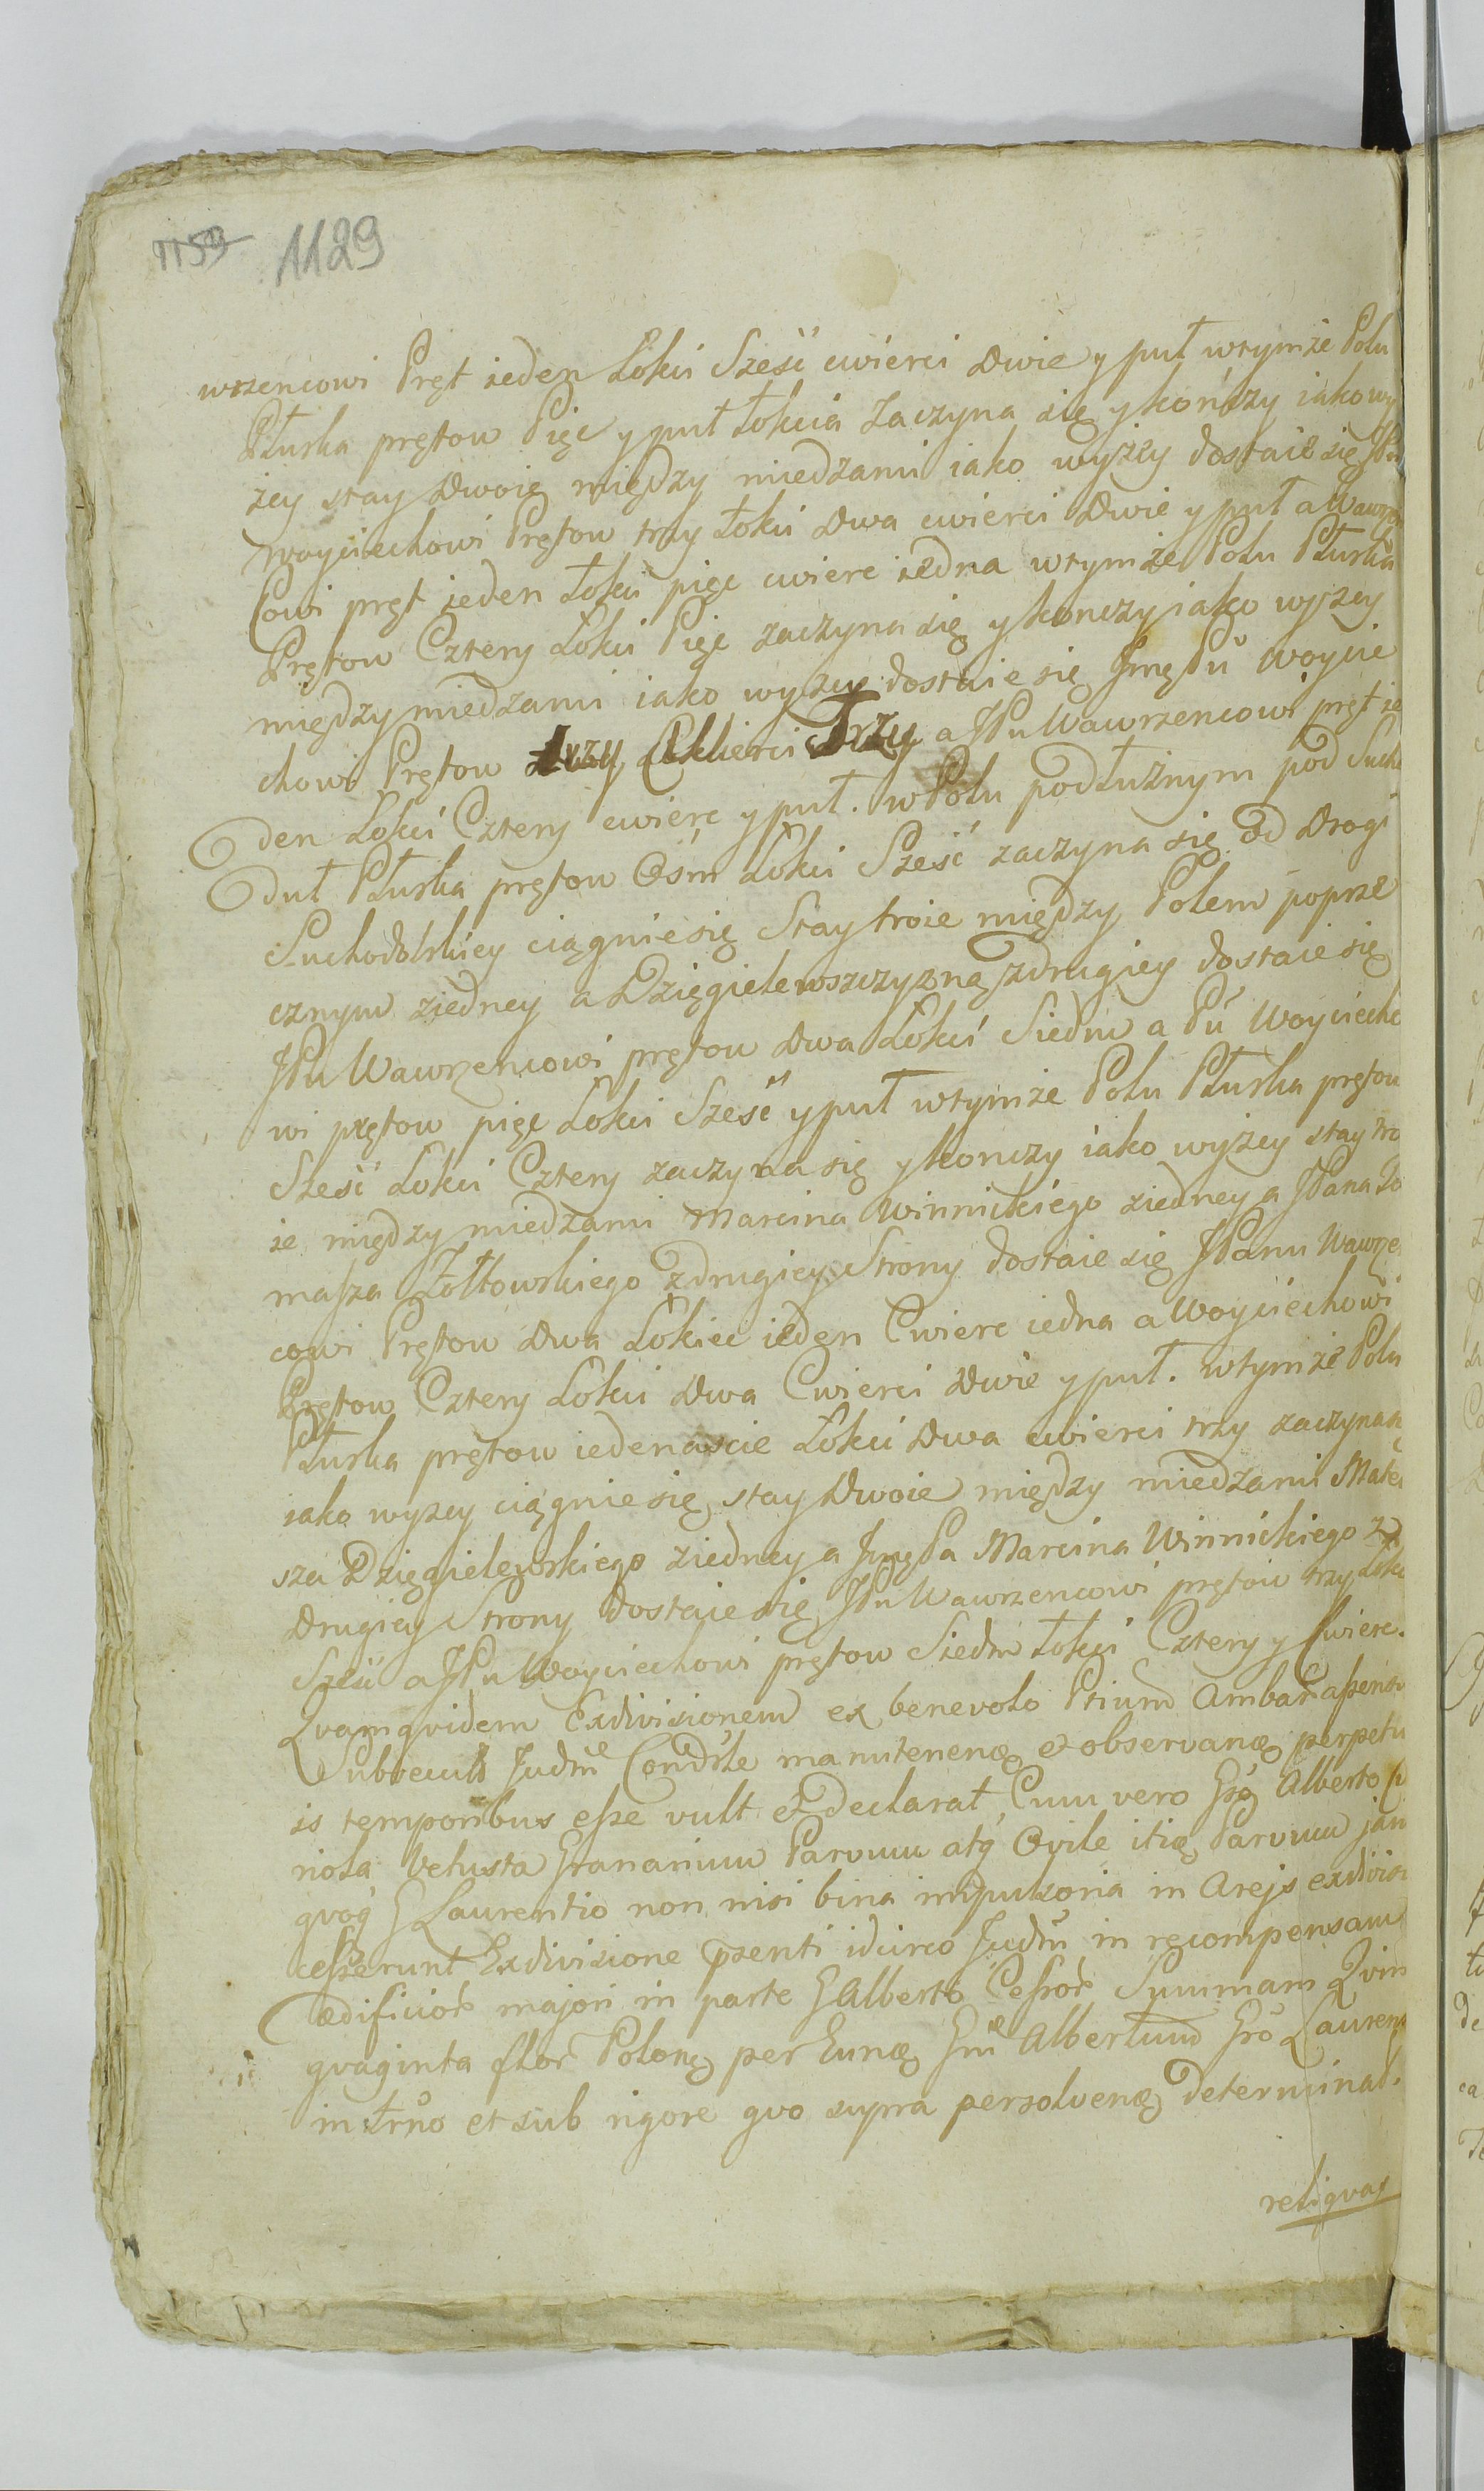 1159 1129
wrzencowi Pręt ieden Łokci Sześć cwierci Dwie y puł wtymże Polu
Płuska prętow Pięc y puł Łokcia Zaczyna się y kończy iako wy
żey stay Dwoię między miedzami iako wyżey dostaie się JPu
Woyciechowi Prętow trzy Łokci Dwa cwierci Dwie y puł a Wawrzen
Cowi pręt ieden Łokci pięc cwierc iedna wtymże Polu Płuska
Prętow Cztery Łokci Pięc zaczyna się y konczy iako wyżey
między miedzami iako wyżey dostaie się Jmę Pu Woycie
chowi Prętow trzy Cwierci Trzy a JPu Wawrzencowi pręt ie
den Łokci Cztery cwierc y puł. w Polu podłużnym pod Sucho
Duł Płuska prętow Ośm Łokci Sześć zaczyna się od Drogi
Suchodolskiey ciągnie się Stay troie między Polem poprze
cznym ziedney a Dzięgielewszczyzną zdrugiey dostaie się
JPu Wawrzencowi prętow Dwa Łokci Siedm a Pu Woyciecho
wi prętow pięc Łokci Sześć y puł wtymże Polu Płuska prętow
Sześć Łokci Cztery zaczyna się y konczy iako wyżey stay tro
ie między miedzami Marcina Winnickiego ziedney a JPana To
masza Żołtowskiego zdrugiey Strony dostaie się JPanu Wawrzen
cowi Prętow Dwa Łokiec ieden Cwierc iedna a Woyciechowi
Prętow Cztery Łokci Dwa Cwierci Dwie y puł. wtymże Polu
Płuska prętow iedenaście Łokci Dwa cwierci trzy zaczyna się
iako wyżey ciągnie się stay Dwoie między miedzami Mateu
sza Dzięgielewskiego ziedney a Jmę Pa Marcina Winnickiego z
Drugiey Strony dostaie się JPu Wawrzencowi prętow trzy Łokci
Sześć a JPu Woyciechowi prętow Siedm Łokci Cztery y Cwierc.
Qvamqvidem Exdivisionem ex benevolo Ptium Ambar aszensu
Subsecuto Judm Condsle manutenenđ et observanđ perpetu
is temporibus esse vult et declarat, Cum vero Gsō Alberto
riola Vetusta Granarium Parvum atq̃ Ovile itiđ Parvum jam
qvoq̃ G Laurentio non nisi bina impulsoria in Arejs exdivisi
cesserunt Exdivisione pzenti idcirco Judm in recompensam
ædificiorʼ majori in parte G Alberto Cessorʼ Summam Qvin
qvaginta flor Polonʼ per Eunđ Gm Albertum Gsō Laurentʼ
in trño et sub rigore qvo supra persolvenđ determinat.
reliqvas